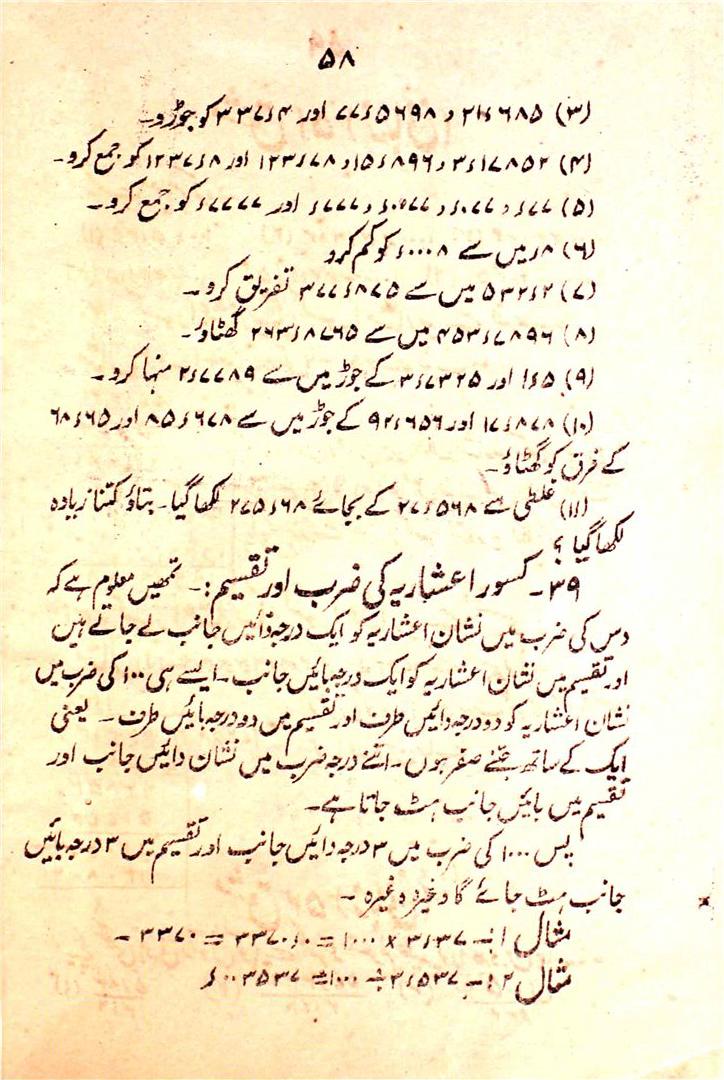 ۵۸
(۳) ۲۱ء۶۸۵ و ۷۷ء۵۶۹۸ اور ۳۳۷ء۴ کو جوڑو۔
(۴) ۳ء۱۷۸۵۲ و ۱۵ء۸۹۶ و ۱۲۳ء۷۸ اور ۱۲۳۷ء۸ کو جمع کرو۔
(۵) ء۱۷۷ و ء۲۰۷۷ و ء۱۰۵۷۷ و ء۷۷۷ اور ء۷۷۷۷ کو جمع کرو۔
(۶) ء۸ میں سے ء۰۰۰۸ کو کم کرو
(۷) ۵۳۲ء۲ میں سے ۳۷۷ء۸۷۵ تفریق کرو۔
(۸) ۴۵۳ء۷۸۹۶ میں سے ۲۶۳ء۸۷۶۵ گھٹاؤ۔
(۹) ۱ء۵ اور ۳ء۷۳۲۵ کے جوڑ میں سے ۲ء۷۷۸۹ منہا کرو۔
(۱۰) ۱۷ء۸۷۸ اور ۹۲ء۶۵۶ کے جوڑ میں سے ۸۵ء۶۷۸ اور ۶۸ء۶۵
کے فرق کو گھٹاؤ۔
(۱۱) غلطی سے ۲۷ء۵۶۸ کے بجائے ۲۷۵ء۶۸ لکھا گیا۔ بتاؤ کتنا زیادہ
لکھا گیا ؟
۳۹۔ کسور اعشاریہ کی ضرب اور تقسیم :۔ تمھیں معلوم ہے کہ
دس کی ضرب میں نشان اعشاریہ کو ایک درجہ دائیں جانب لے جاتے ہیں
اور تقسیم میں نشان اعشاریہ کو ایک درجہ بائیں جانب۔ ایسے ہی ۱۰۰ کی ضرب میں
نشان اعشاریہ کو دو درجہ دائیں طرف اور تقسیم میں دو درجہ بائیں طرف۔ یعنی
ایک کے ساتھ جتنے صفر ہوں۔ اتنے درجہ ضرب میں نشان دائیں جانب اور
تقسیم میں بائیں جانب ہٹ جاتا ہے۔
پس ۱۰۰۰ کی ضرب میں ۳ درجہ دائیں جانب اور تقسیم میں ۳ درجہ بائیں
جانب ہٹ جائے گا وغیرہ وغیرہ۔
مثال ۱:۔ ۳ء۳۷ × ۱۰۰۰ = ۳۳۷۰ء۰ = ۳۳۷۰۔
مثال ۲:۔ ۳ء۵۳۷ ÷ ۱۰۰۰ = ء۰۰۳۵۳۷